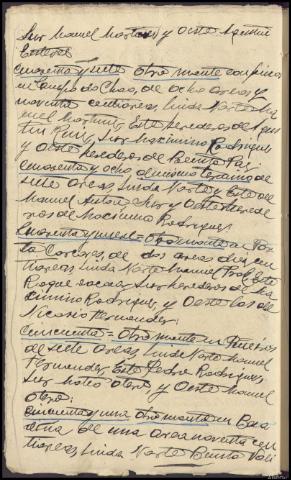 Sur Manuel Martinez y Oeste Agustin
Esteves
Cuarenta y siete otro monte con pinos
en Campo do Chao, de ocho areas y
noventa centiareas, linda Norte Ma
nuel Martinez, Este herederos de Agus
tin Ruiz, Sur Maximino Rodriguez
y Oeste herederos de Benito Paz
Cuarenta y ocho de mismo terreno de
siete areas, linda Norte y Este de
Manuel Anton, Sur y Oeste herede
ros de Maximino Rodriguez
Cuarenta y nueve = otro monte en
Corceres, de dos areas diez cen
tiareas, linda Norte Manuel Este
Roque Sur herederos de Ma
ximino Rodriguez, y Oeste los de
Nicasio Fernandez:
Cincuenta = otro monte en
de siete areas, linda Norte Manuel
Fernandez, Este Pedro Rodriguez,
Sur Otero y Oeste Manuel
Otero:
Cincuenta y una otro monte en
de una area noventa cen
tiareas, linda Norte Benito